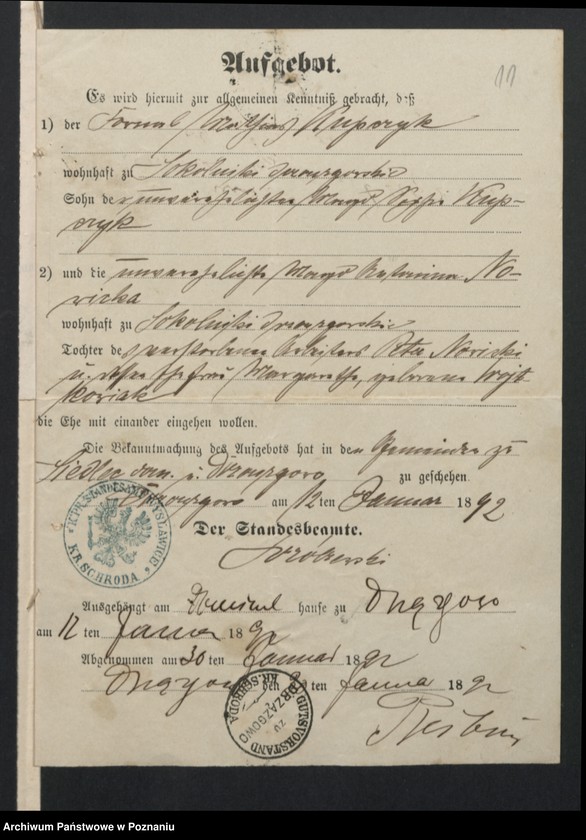 11
Aufgebot.
Es wird hiermit zur allgemeinen Kenntniß gebracht, daß
1) der Fornal Mathias Kupczyk
wohnhaft zu Sokolniki drzązgowskie
Sohn der unverehelichten Magd, Kup-
czyk
2) und die unverehelichte Magd Katarina No-
wicka
wohnhaft zu Sokolniki drzązgowskie
Tochter des verstorbenen Arbeiters Nowicki
u. dessen Ehefrau Margarethe, geborene Wojt
kowiak
die Ehe mit einander eingehen wollen.
Die Bekanntmachung des Aufgebots hat in den Gemeinden zu
Siedlec dom. u. zu geschehen.
am 12 ten Januar 1892
Der Standesbeamte.
K. PR. STANDESAMT
KR. SCHRODA
Ausgehängt am hause zu
am 12 ten Januar 1892
Abgenommen am 30 ten Januar 1892
den ten Januar 1892
GUTSVORSTAND
ZU
DRZAZGOWO
KR. SCHRODA
Archiwum Państwowe w Poznaniu